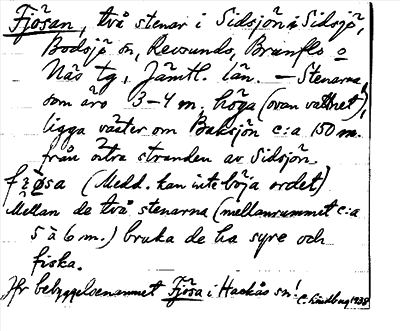 Fjösan, två stenar i Sidsjön, Sidsjö,
Bodsjö sn, Revsunds, Brunflo o
Näs tg, Jämtl. län. – Stenarna,
som äro 3–4 m. höga (ovan vattnet),
ligga väster om Baksjön c:a 150 m.
från östra stranden av Sidsjön.
(Medd. kan inte böja ordet)
Mellan de två stenarna (mellanrummet c:a
5 à 6 m.) bruka de ha syre och
fiska.
Jfr bebyggelsenamnet Fjösa i Hackås sn!
C. Lindberg 1938